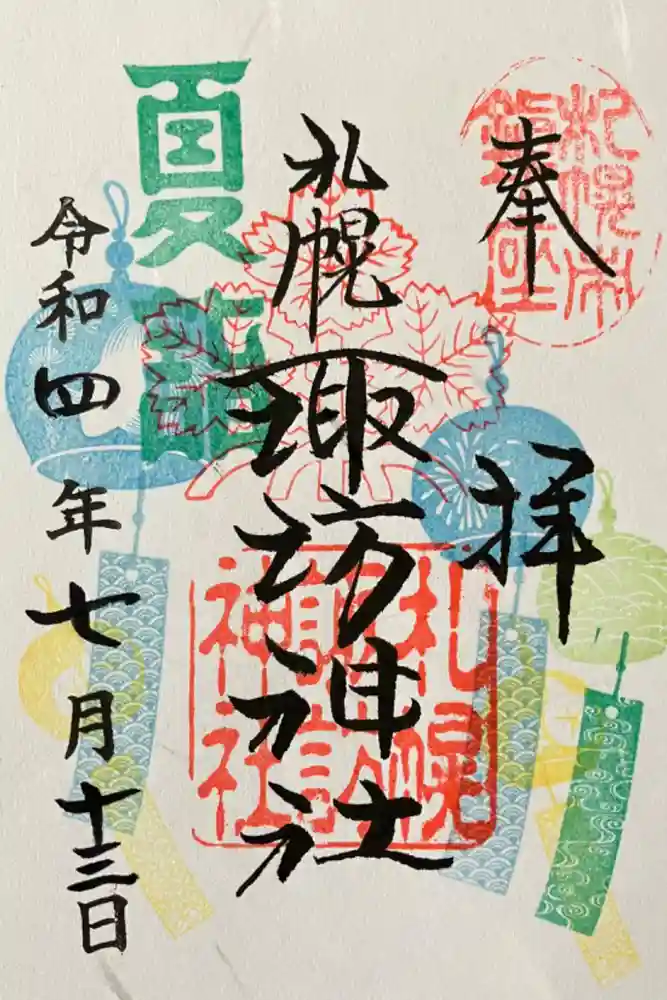 奉拝
札幌市
鎮座
札幌諏訪神社
札幌
諏訪
神社
夏詣
令和四年七月十三日